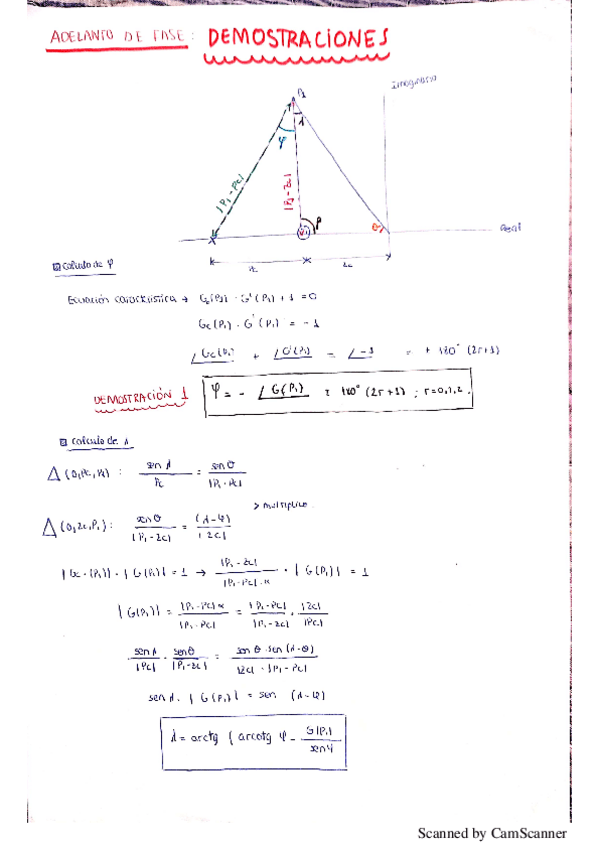 ADELANTO DE FASE: DEMOSTRACIONES
P1
Imaginario
λ
φ
|P1-Pc|
|P1-Zc|
β
θ
Real
X
Pc
Zc
Calculo de φ
Ecuación característica → Gc(P1) · G'(P1) + 1 = 0
Gc(P1) · G'(P1) = -1
∠Gc(P1) + ∠G'(P1) = ∠-1 = ± 180° (2r+1)
DEMOSTRACIÓN 1
φ = - ∠G(P1) ± 180° (2r+1) ; r=0,1,2.
Calculo de λ
Δ(0,Pc,P1) : sen λ / Pc = sen θ / |P1-Pc|
> multiplico
Δ(0,Zc,P1) : sen θ / |P1-Zc| = (λ-φ) / |Zc|
|Gc·(P1)| · |G(P1)| = 1 → |P1-Zc| / |P1-Pc|·α · |G(P1)| = 1
|G(P1)| = |P1-Pc|α / |P1-Pc| = |P1-Pc| / |P1-Zc| · |Zc| / |Pc|
sen λ / |Pc| · sen θ / |P1-Zc| = sen θ · sen (λ-θ) / |Zc| · |P1-Pc|
sen λ · |G(P1)| = sen (λ-φ)
λ = arctg ( arcotg φ - G(P1) / sen φ
Scanned by CamScanner